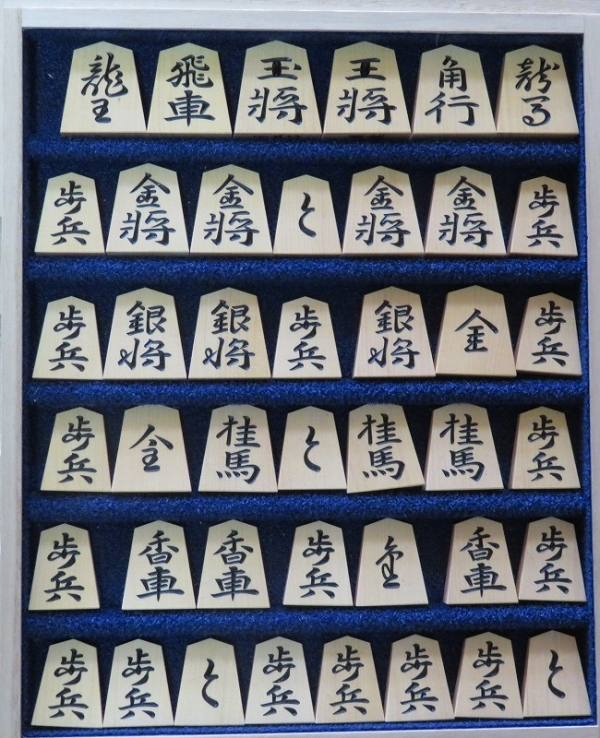 龍王 飛車 玉将 王将 角行 龍馬
歩兵 金将 金将 と 金将 金将 歩兵
歩兵 銀将 銀将 歩兵 銀将 全 歩兵
歩兵 全 桂馬 と 桂馬 桂馬 歩兵
歩兵 香車 香車 歩兵 香車 歩兵
歩兵 歩兵 と 歩兵 歩兵 歩兵 歩兵 と